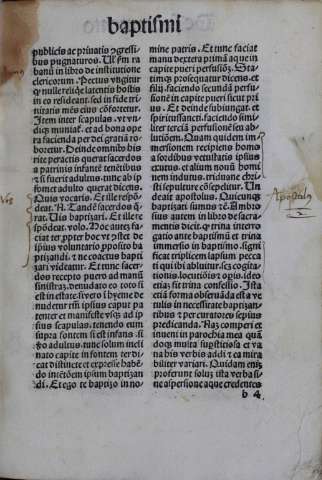 baptismi
publicis ac privatis ogressi
bus pugnaturos. Uſ m ra
banū in libro de institutione
clericorum. Pectus vngitur
qͥ nulle reliqͥe latentis hostis
in eo resideant. sed in fide tri
nitatis mēs eiꝰ cōfortetur.
Item inter scapulas. vt vn
diqͥ muniaͭ. et ad bona ope
ra facienda per dei gratiā ro
boretur. Deinde omnibꝰ his
rite peractis querat sacerdos
a patrinis infantē tenētibus
si fuerit adultus tunc ab ip
somet adulto querat dicens.
Quis vocaris. Et ille respō
deat. A. Tandē sacerdos q̄
rat. Uis baptizari. Et ille re
spōdeat. volo. Hoc autes fa
ciat ter ppter hoc vt pstet de
ipsius voluntario pposito ba
ptizandi. et ne coactus bapti
zari videatur. Et tunc sacer
dos recepto puero ad manū
sinistraꝫ. denudato eo toto si
est in estate. si vero i hyeme de
nudetur tm̄ ipsius caput pa
tenter et manifeste vsqꝫ ad ip
sius scapulas. tenendo eum
supra fontem si est infans. si
ꝟo adultus. tunc solum incli
nato capite in fontem ter di
cat distincte et expresse habē
do intētōem ipsum baptizan
di. Et ego te baptizo in no
mine patris. Et tunc faciat
manu dextera primā aque in
capite pueri perfusiōꝫ. Sta
timqꝫ prosequatur dicens. et
filij. faciendo secundā perfu
sionē in capite pueri sicut pri
us. Et deinde subiungat. et
spiritussancti. faciendo simi
liter terciā perfusionē seu ab
lutōem. Quam quidem im
mersionem recipiens homo
a sordibus vetustatis ipsius
exutus. et alium nouū homi
nem indutus. triduane chri
sti sepulture cōsepelitur. Un
de ait apostolus. Quicunqꝫ
baptizati sumus ⁊c̄. Ambro
sius autem in libro de sacra
mentis dicit. qꝫ trina interro
gatio ante baptismū et trina
immersio in baptismo. signi
ficat triplicem lapsum pecca
ti qui ibi abluitur. sꝫ cogita
tionis. locutiōis et opis. ideo
etiaꝫ sit trina confessio. Ista
etiā forma obseruāda est a ve
tulis in necessitate baptizan
tibus ⁊ per curatores sepius
predicanda. Naꝫ comperi et
inueni in parochia mea quā
dōqꝫ multa sugstiosa et va
na his verbis addi ⁊ ea mira
biliter variari. Quidam enīꝫ
proferunt soluꝫ ista verba si
ne aspersione aque credentes
b 4
Apostolus
Vis